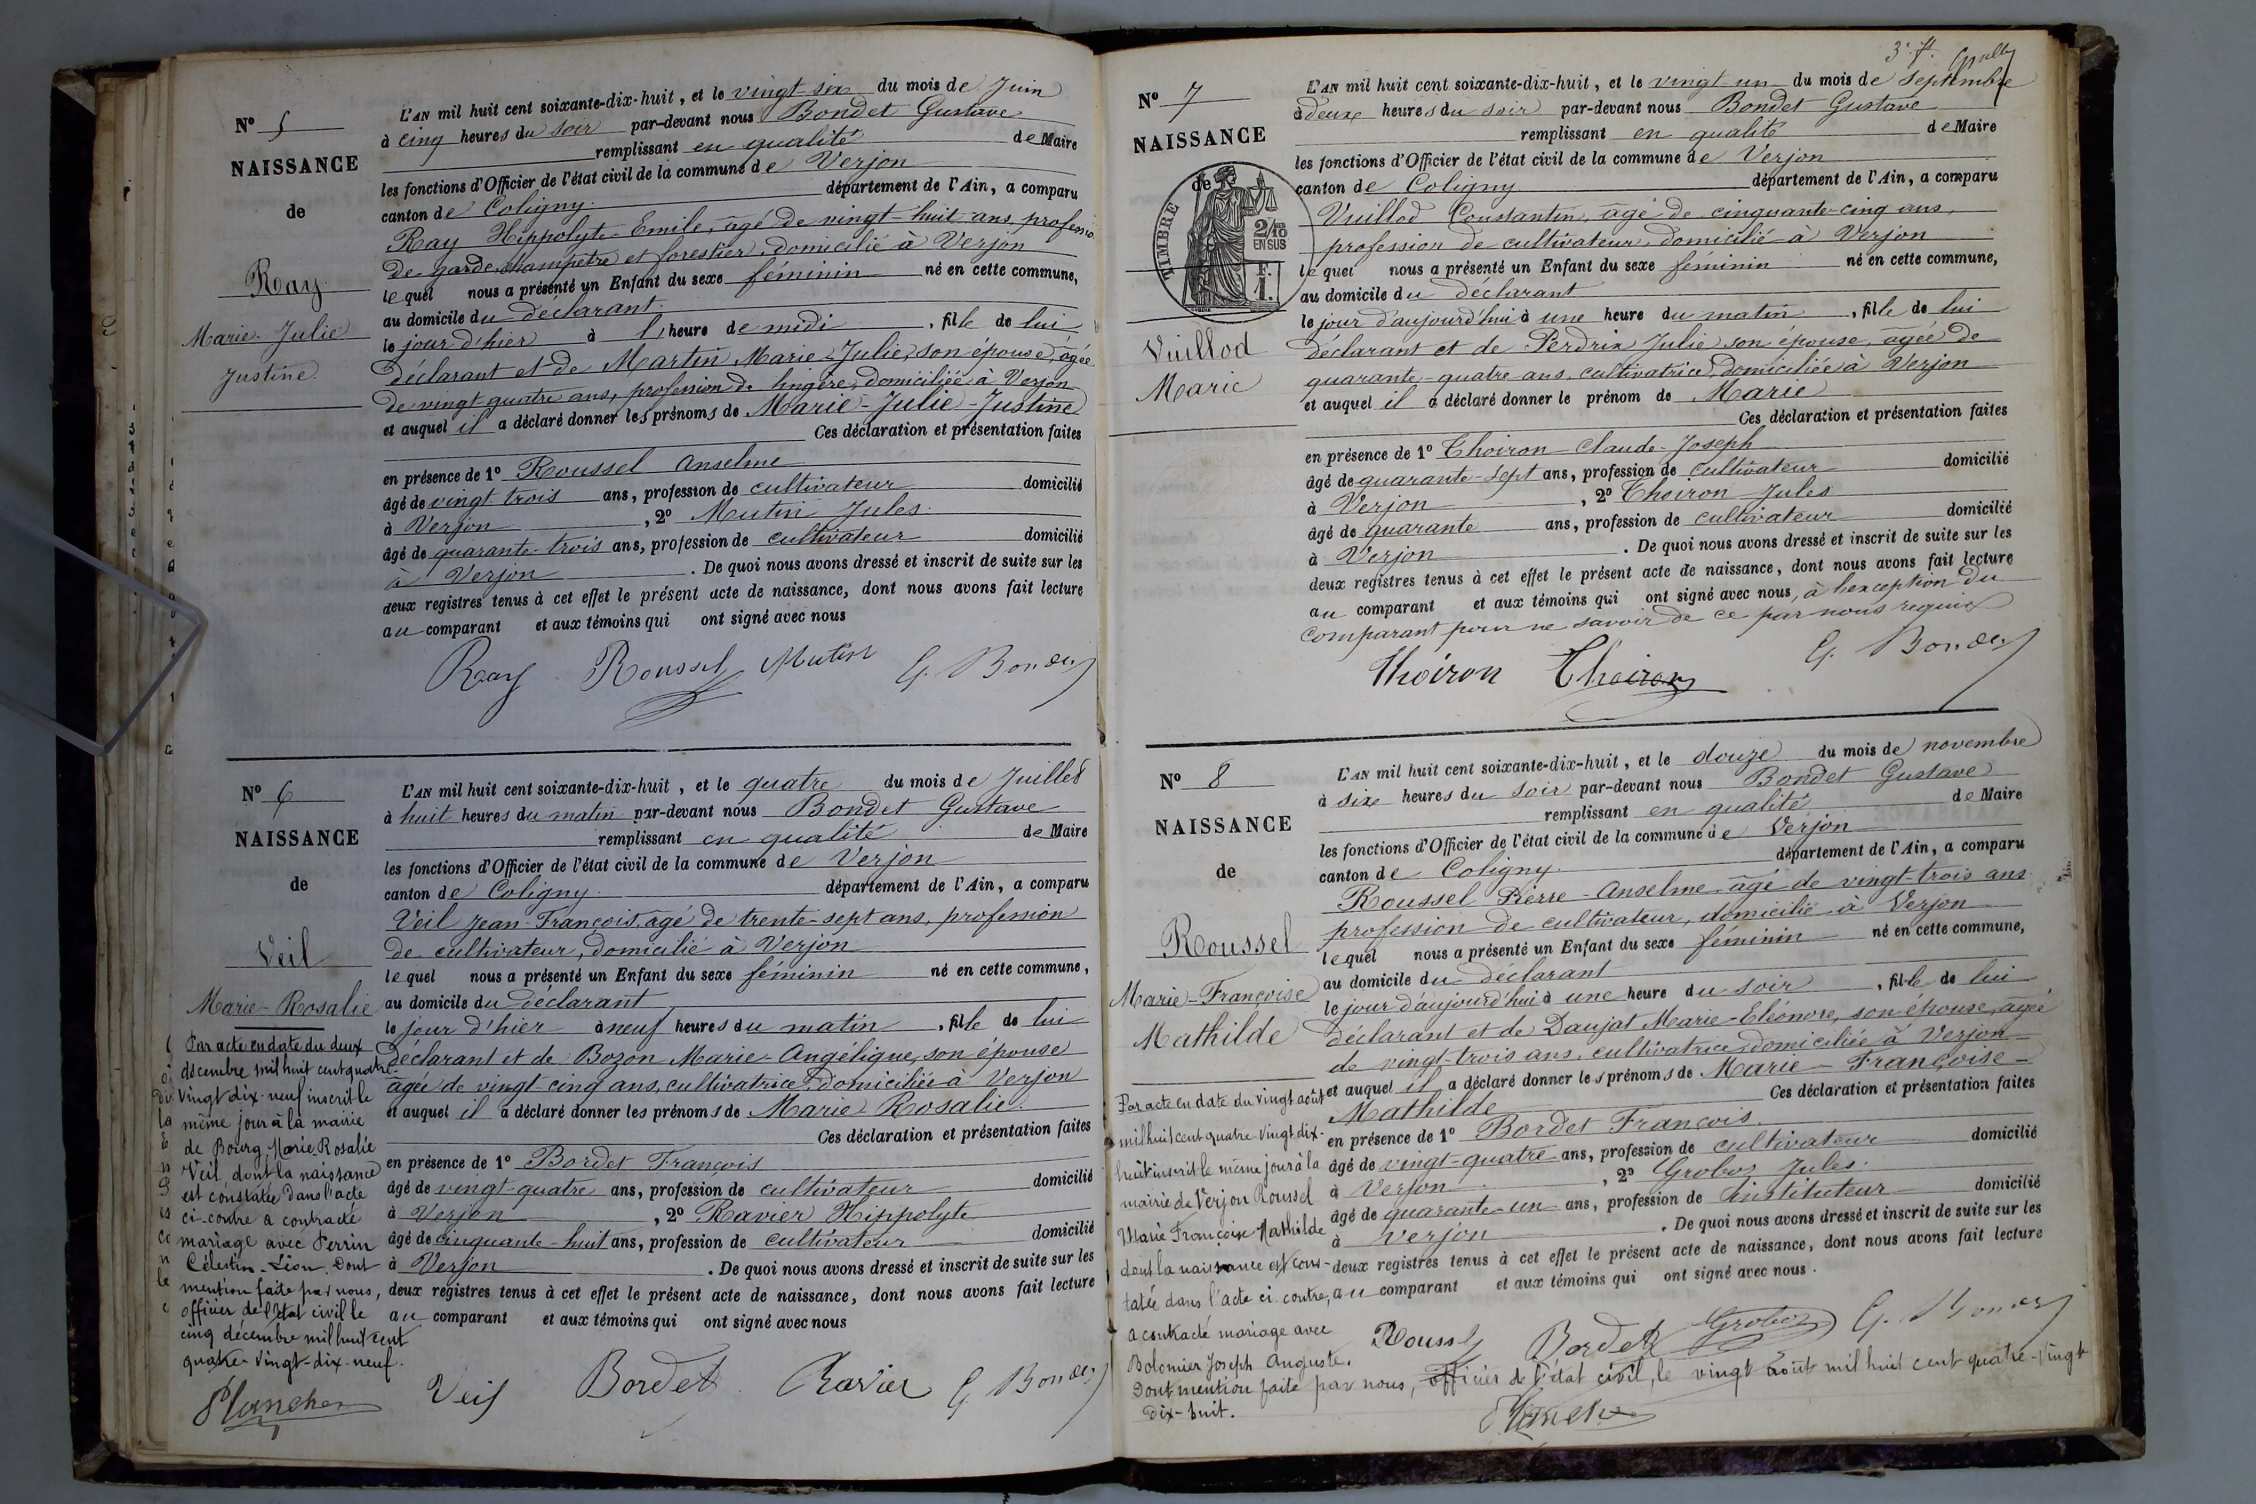 N° 5
NAISSANCE
de
Ray
Marie-Julie
Justine.
L'AN mil huit cent soixante-dix-huit, et le vingt six du mois de Juin
à cinq heures du soir par-devant nous Bondet Gustave
remplissant en qualité de Maire
les fonctions d'Officier de l'état civil de la commune de Verjon
canton de Coligny. département de l'Ain, a comparu
Ray Hippolyte-Emile, âgé de vingt-huit ans, profession
de garde champêtre et forestier, domicilié à Verjon
lequel nous a présenté un Enfant du sexe féminin né en cette commune,
au domicile du déclarant.
le jour d'hier à l'heure de midi, fille de lui
déclarant et de Martin Marie-Julie, son épouse, âgée
de vingt quatre ans, profession de lingère, domiciliée à Verjon
et auquel il a déclaré donner les prénoms de Marie-Julie-Justine
Ces déclaration et présentation faites
en présence de 1° Roussel Anselme
âgé de vingt-trois ans, profession de cultivateur domicilié
à Verjon, 2° Mutin Jules.
âgé de quarante-trois ans, profession de cultivateur domicilié
à Verjon. De quoi nous avons dressé et inscrit de suite sur les
deux registres tenus à cet effet le présent acte de naissance, dont nous avons fait lecture
au comparant et aux témoins qui ont signé avec nous
Ray Roussel Mutin G. Bondet
N° 6
NAISSANCE
de
Veil
Marie-Rosalie
Par acte en date du deux
décembre mil huit cent quatre-
vingt dix-neuf inscrit le
même jour à la mairie
de Bourg, Marie Rosalie
Veil, dont la naissance
est constatée dans l'acte
ci-contre a contracté
mariage avec Perrin
Célestin-Léon. Dont
mention faite par nous,
officier de l'état civil le
cinq décembre mil huit cent
quatre-vingt-dix-neuf.
L'AN mil huit cent soixante-dix-huit, et le quatre du mois de Juillet
à huit heures du matin par-devant nous Bondet Gustave
remplissant en qualité de Maire
les fonctions d'Officier de l'état civil de la commune de Verjon
canton de Coligny. département de l'Ain, a comparu
Veil Jean-François, âgé de trente-sept ans, profession
de cultivateur, domicilié à Verjon
lequel nous a présenté un Enfant du sexe féminin né en cette commune,
au domicile du déclarant
le jour d'hier à neuf heures du matin, fille de lui
déclarant et de Bozon Marie-Angélique, son épouse
âgée de vingt-cinq ans, cultivatrice, domiciliée à Verjon
et auquel il a déclaré donner les prénoms de Marie Rosalie.
Ces déclaration et présentation faites
en présence de 1° Bordet François
âgé de vingt-quatre ans, profession de cultivateur domicilié
à Verjon, 2° Ravier Hippolyte
âgé de cinquante-huit ans, profession de cultivateur domicilié
à Verjon. De quoi nous avons dressé et inscrit de suite sur les
deux registres tenus à cet effet le présent acte de naissance, dont nous avons fait lecture
au comparant et aux témoins qui ont signé avec nous
Veil Bordet Ravier G. Bondet
3e f.
N° 7
NAISSANCE
de
TIMBRE
2/10
EN SUS
F.
1.
Vuillod
Marie
L'AN mil huit cent soixante-dix-huit, et le vingt-un du mois de Septembre
à deux heures du soir par-devant nous Bondet Gustave
remplissant en qualité de Maire
les fonctions d'Officier de l'état civil de la commune de Verjon
canton de Coligny département de l'Ain, a comparu
Vuillod Constantin, âgé de cinquante-cinq ans,
profession de cultivateur, domicilié à Verjon
lequel nous a présenté un Enfant du sexe féminin né en cette commune,
au domicile du déclarant
le jour d'aujourd'hui à une heure du matin, fille de lui
déclarant et de Perdrix Julie son épouse, âgée de
quarante-quatre ans, cultivatrice, domiciliée à Verjon
et auquel il a déclaré donner le prénom de Marie
Ces déclaration et présentation faites
en présence de 1° Thoiron Claude-Joseph
âgé de quarante-sept ans, profession de cultivateur domicilié
à Verjon, 2° Thoiron Jules
âgé de quarante ans, profession de cultivateur domicilié
à Verjon. De quoi nous avons dressé et inscrit de suite sur les
deux registres tenus à cet effet le présent acte de naissance, dont nous avons fait lecture
au comparant et aux témoins qui ont signé avec nous, à l'exception du
comparant pour ne savoir de ce par nous requis
Thoiron Thoiron G. Bondet
N° 8
NAISSANCE
de
Roussel
Marie-Françoise
Mathilde
Par acte en date du vingt août
mil huit cent quatre-vingt-dix-
huit inscrit le même jour à la
mairie de Verjon Roussel
Marie Françoise Mathilde
dont la naissance est cons-
tatée dans l'acte ci-contre,
a contracté mariage avec
Bolomier Joseph Auguste.
Dont mention faite par nous, officier de l'état civil, le vingt août mil huit cent quatre-vingt
dix-huit.
L'AN mil huit cent soixante-dix-huit, et le douze du mois de novembre
à six heures du soir par-devant nous Bondet Gustave
remplissant en qualité de Maire
les fonctions d'Officier de l'état civil de la commune de Verjon
canton de Coligny. département de l'Ain, a comparu
Roussel Pierre-Anselme âgé de vingt-trois ans
profession de cultivateur, domicilié à Verjon
lequel nous a présenté un Enfant du sexe féminin né en cette commune,
au domicile du déclarant
le jour d'aujourd'hui à une heure du soir, fille de lui
déclarant et de Daujat Marie-Eléonore, son épouse, âgée
de vingt-trois ans, cultivatrice, domiciliée à Verjon
et auquel il a déclaré donner les prénoms de Marie-Françoise-
Mathilde Ces déclaration et présentation faites
en présence de 1° Bordet François.
âgé de vingt-quatre ans, profession de cultivateur domicilié
à Verjon, 2° Groboz Jules.
âgé de quarante-un ans, profession de instituteur domicilié
à Verjon. De quoi nous avons dressé et inscrit de suite sur les
deux registres tenus à cet effet le présent acte de naissance, dont nous avons fait lecture
au comparant et aux témoins qui ont signé avec nous.
Roussel Bordet Groboz G. Bondet